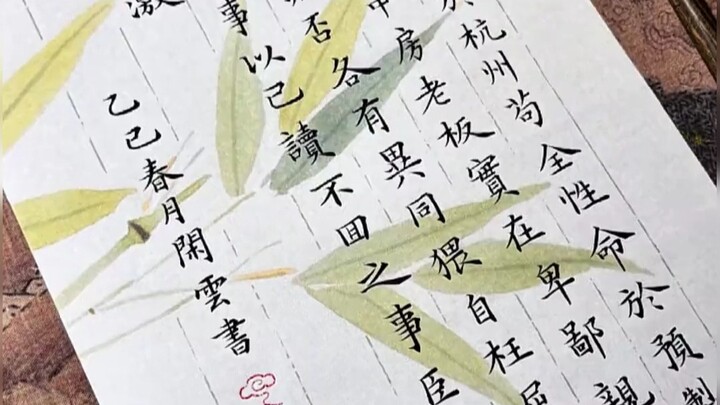 於杭州苟全性命於預制
中房老板實在卑鄙親
否各有異同猥自枉屈
事以已讀不回之事臣
激
乙巳春月閑雲書